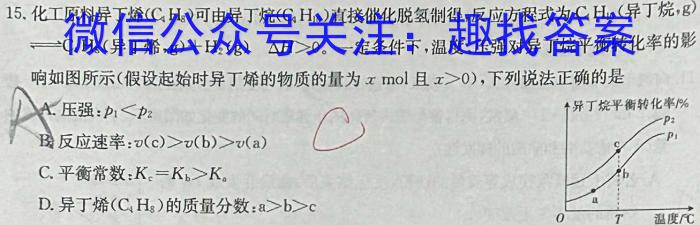 15. 化工原料异丁烯(C₄H₈)可由异丁烷(C₄H₁₀)直接催化脱氢制得,反应方程式为C₄H₁₀(异丁烷,g)
⇌C₄H₈(异丁烯,g)+H₂(g) ΔH>0。一定条件下,温度、压强对异丁烷平衡转化率的影
微信公众号关注:趣找答案
响如图所示(假设起始时异丁烯的物质的量为x mol且x>0),下列说法正确的是
A. 压强:p₁<p₂
B. 反应速率:v(c)>v(b)>v(a)
C. 平衡常数:K_c=K_b>K_a
D. 异丁烯(C₄H₈)的质量分数:a>b>c
异丁烷平衡转化率/%
p₂
p₁
c
b
a
O T 温度/℃
A